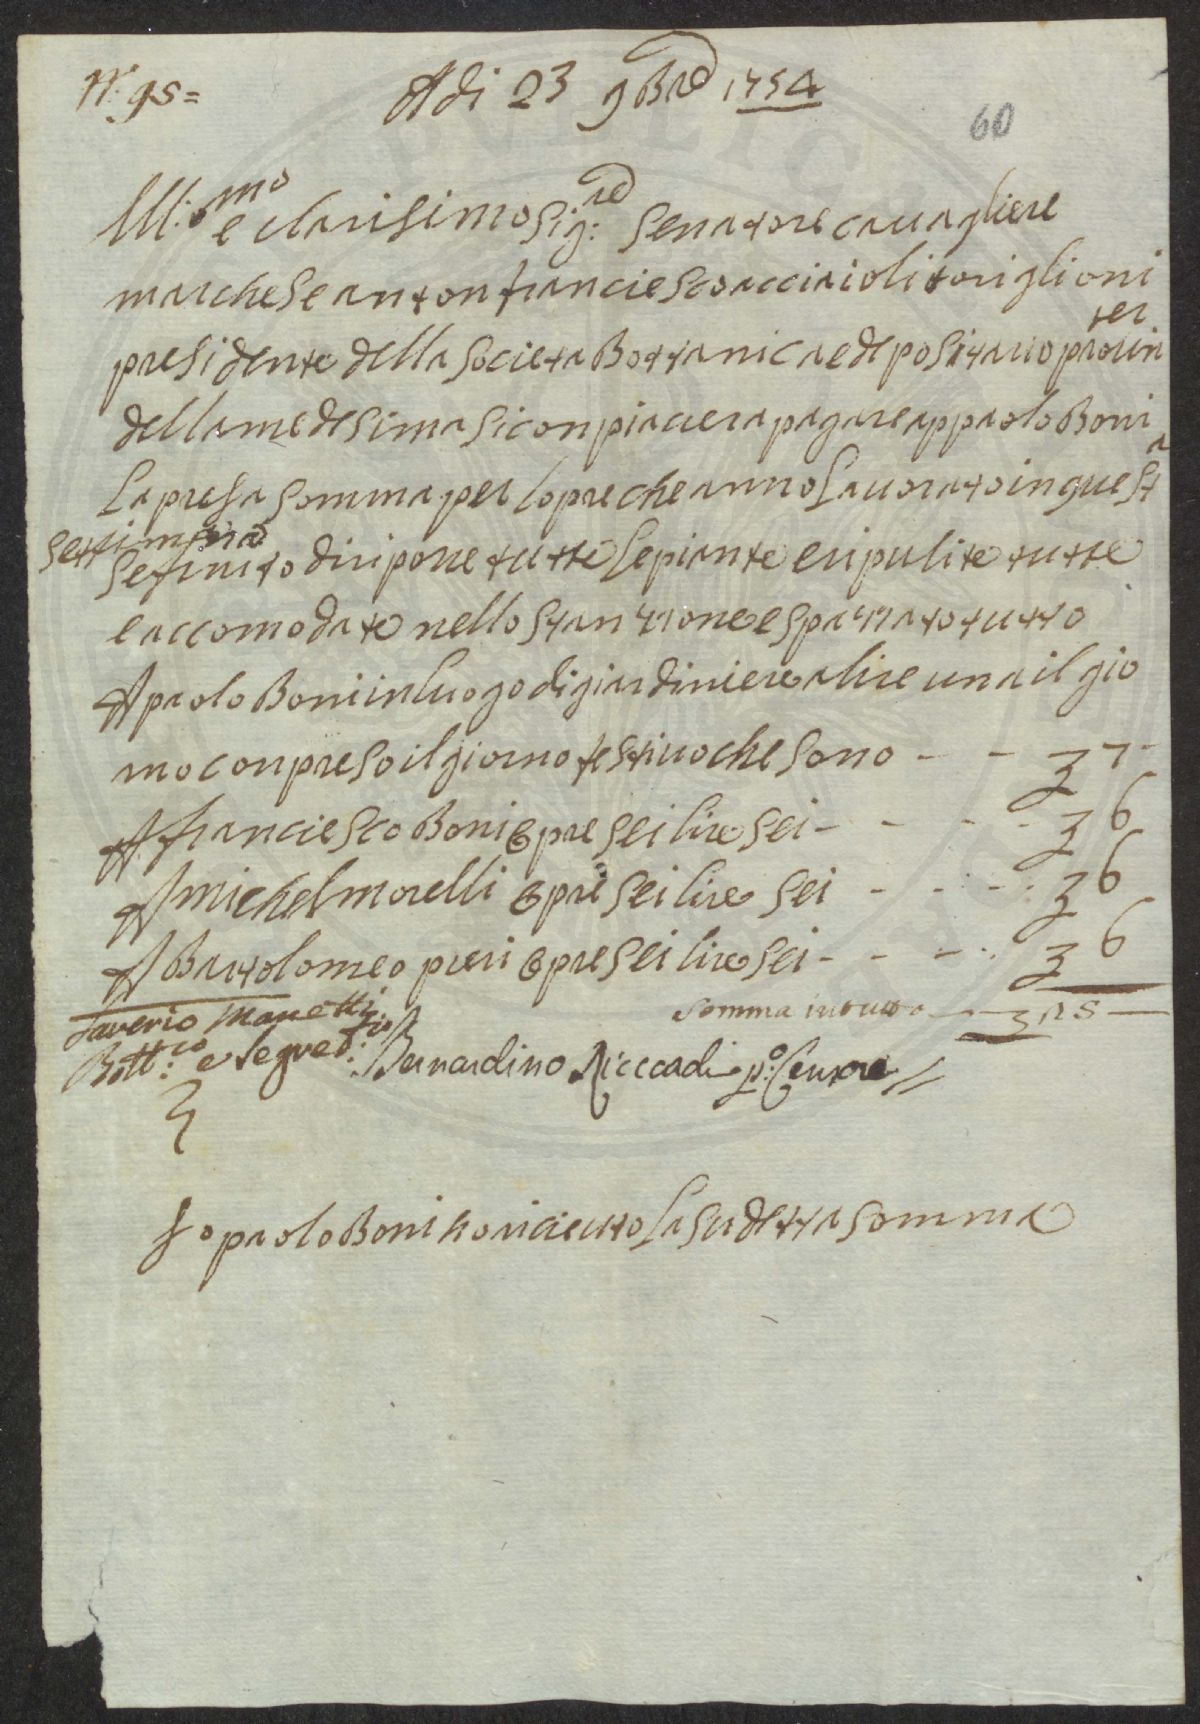 N.° 95=
Adi 23 9bre 1754
60
Ill:mo e clarisimo Sig:re Senatore cauagliere
marchese anton franciesco acciaioli toriglioni
presidente della Societa Bottanica e depositario prouin
ter
della medesima si conpiaciera pagare appaolo Boni
La presa somma per lopre che anno Lauorato in quest
a
settimana
Se finito di riporre tutte Le piante e ripulite tutte
e accomodate nello stanzione e spazzato tutto
A paolo Boni in luogo di giardiniere a lire una il gio
rno conpreso il giorno festiuo che sono - - ₤ 7 -
A franciesco Boni opre sei lire sei - - - - ₤ 6
A michel morelli opre sei lire sei - - - ₤ 6
A Bartolomeo pieri opre sei lire sei - - - - ₤ 6
somma in tutto — ₤ 25 —
Saverio Manetti
Bott:co e Segret:rio
Bernardino Ricccadi p:° Censore
Io paolo Boni ho riceuto La sudetta somma